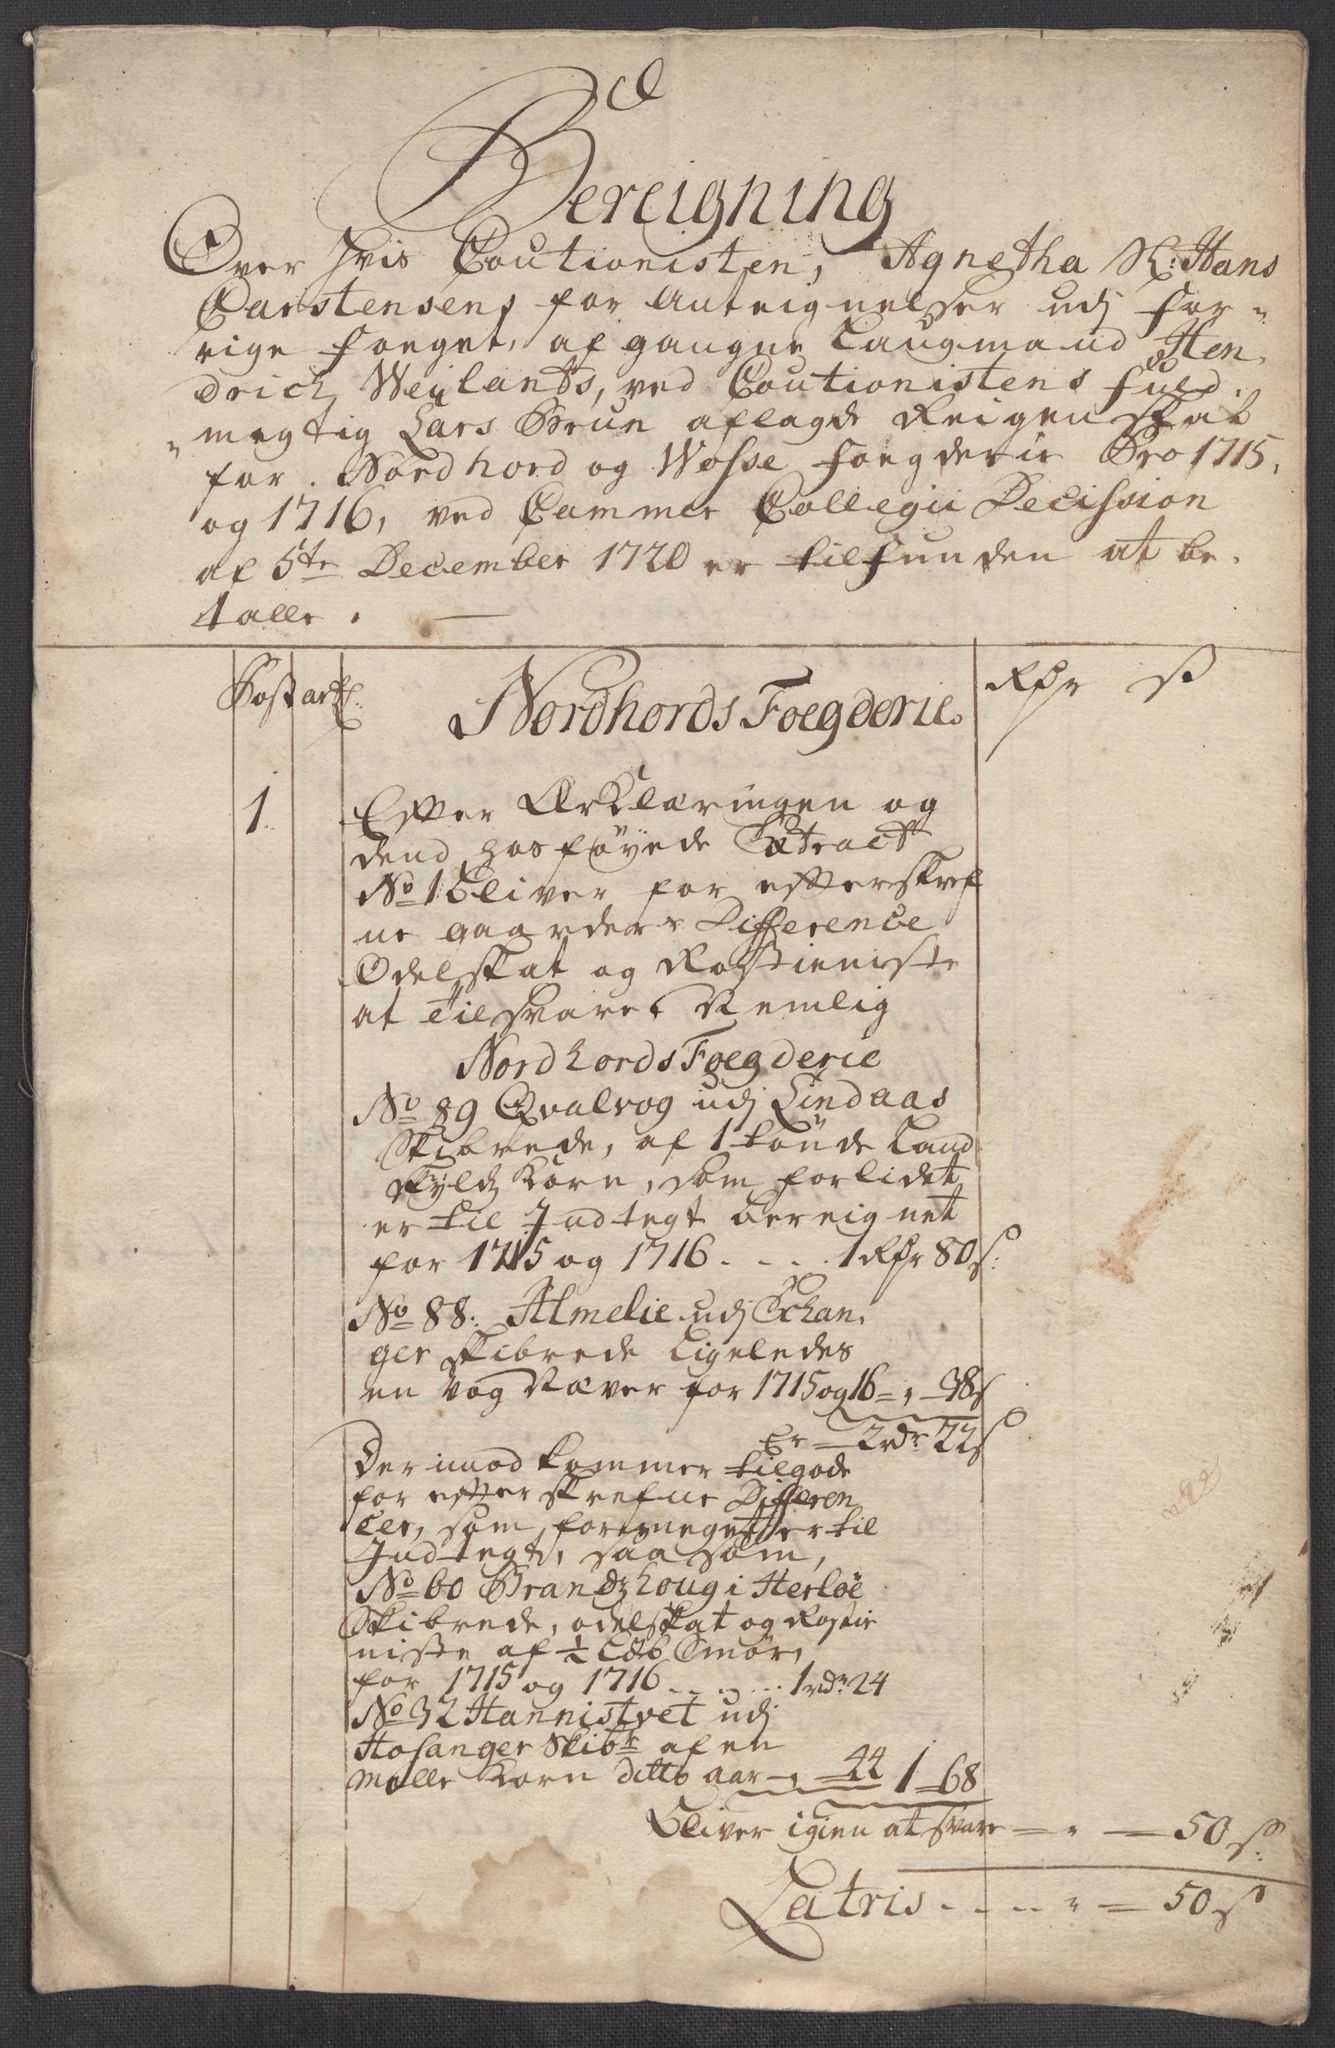 Bereigning
Over hvis Coutionisten, Agnetha Sl: Hans
Carstensens for Anteignelser udj for-
rige Foeget, afgangne Laugmand Hen-
drich Weylants, ved Coutionistens Fuld-
megtig Lars Brun aflagde Reigenskab
for Nordhord og Wosse Foegderie Pro 1715,
og 1716, ved Cammer Collegii Decission
af 5te December 1720 er tilfunden at be-
talle.
Post artl: Nordhords Foegderie Rdr s
1. Efter Erklæringen og
dend hosføyede Extract
No 1 bliver for efterskref
ne gaarders Difference
Odelskat og Rostieniste
at tilsvare, Nemlig
Nordhords Foegderie
No 89 Qvalvog udj Lindaas
Skibrede, af 1 tønde Land
skyld Korn, som forlidet
er til Indtegt bereignet
for 1715 og 1716 - - - 1 Rdr 80 s:
No 88: Almelie udj Echan-
ger skibrede ligeledes
en vog Næver for 1715 og 16 = " - 38 s
Er - 2 rdr 22 s
Der imod kommer tilgode
for efterskrefne Differen
cer, som formeget er til
Indtegt, saa som,
No 60 Brandzhoug i Herløe
Skibrede, odelskat og Rostie
niste af ½ Løb Smør,
for 1715 og 1716 - - - 1 rdr 24
No 32 Hannistvet udj
Hosanger Skibr: af en
melle Korn ditto aar - " - 44 1 - 68
Bliver igien at svare - " - 50 s:
Latris - - - " - 50 s